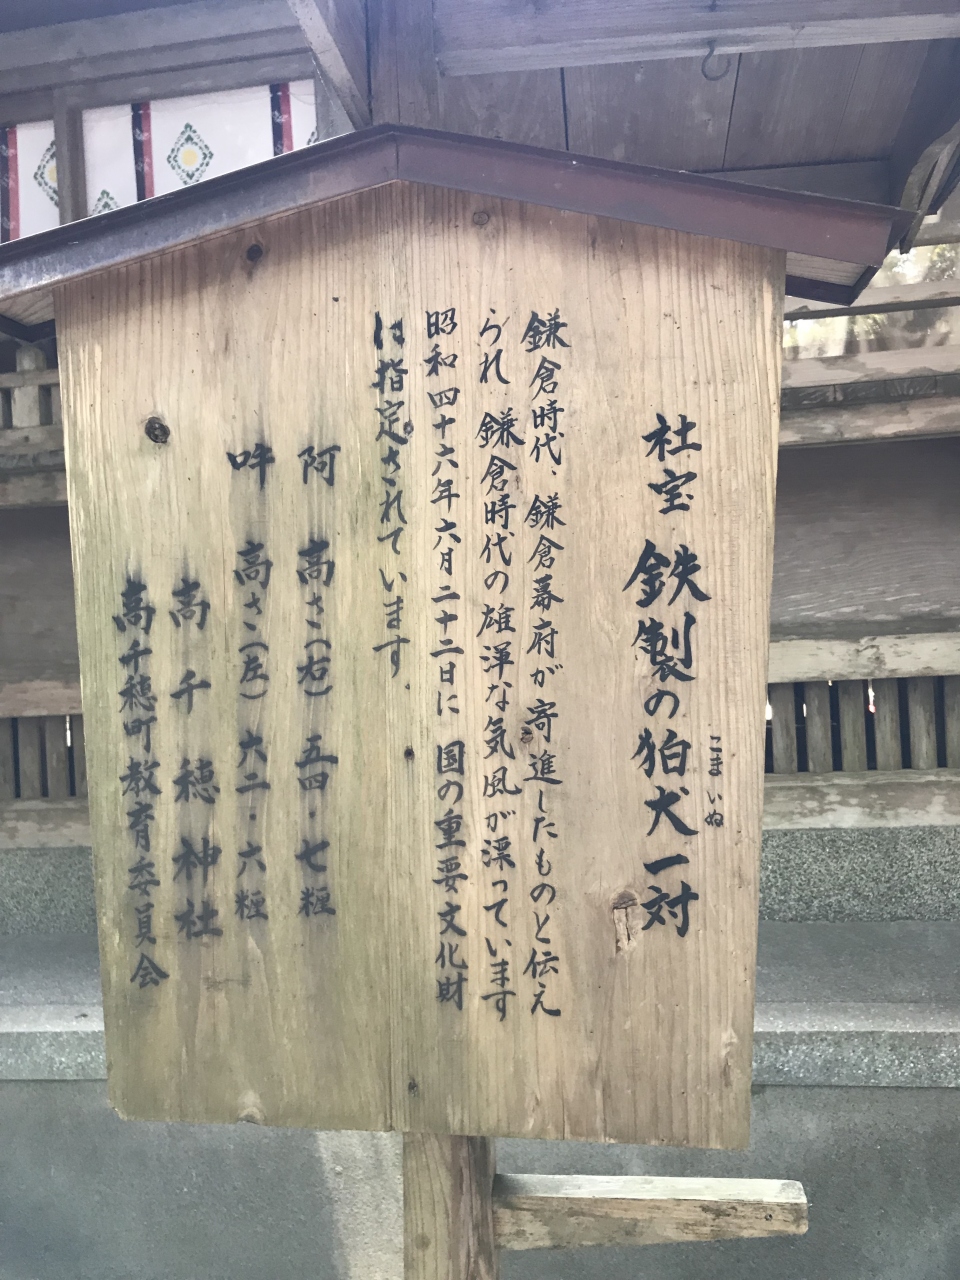 社宝 鉄製の狛犬一対
こまいぬ
鎌倉時代、鎌倉幕府が寄進したものと伝え
られ 鎌倉時代の雄渾な気風が漂っています
昭和四十六年六月二十二日に 国の重要文化財
に指定されています。
阿 高さ(右) 五四・七糎
吽 高さ(左) 六二・六糎
高千穂神社
高千穂町教育委員会